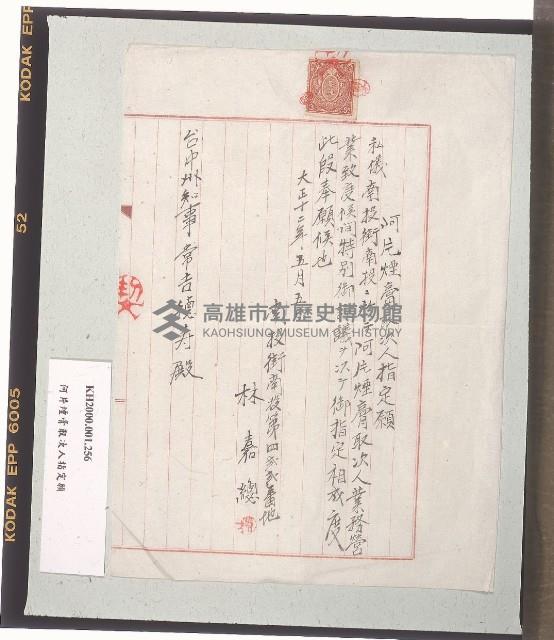 阿片煙膏取次人指定願
私儀南投街南投ニ於テ阿片煙膏取次人業務營
業致度候間特別御詮議ヲ以テ御指定相成度
此段奉願候也
大正十二年五月五
投街南投第四弍弍番地
林嘉總
台中州知事常吉德壽殿
高雄市立歷史博物館
KAOHSIUNG MUSEUM OF HISTORY
KH2000.001.256
阿片煙膏取次人指定願
KODAK EPP
52
KODAK EPP 6005